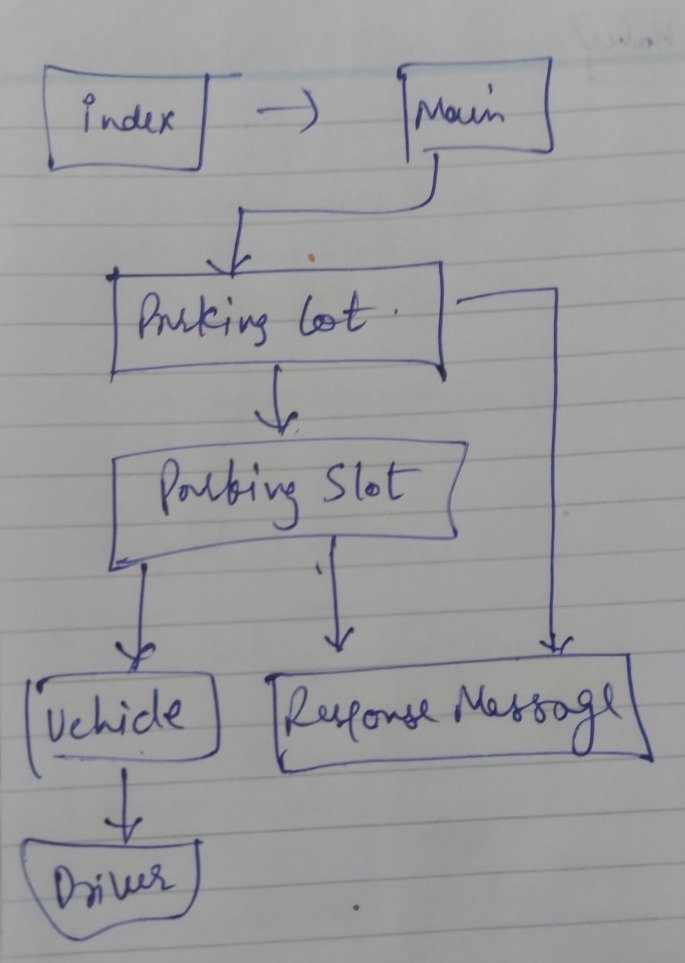 index
Main
Parking Lot.
Parking Slot
Vehicle
Response Message
Driver